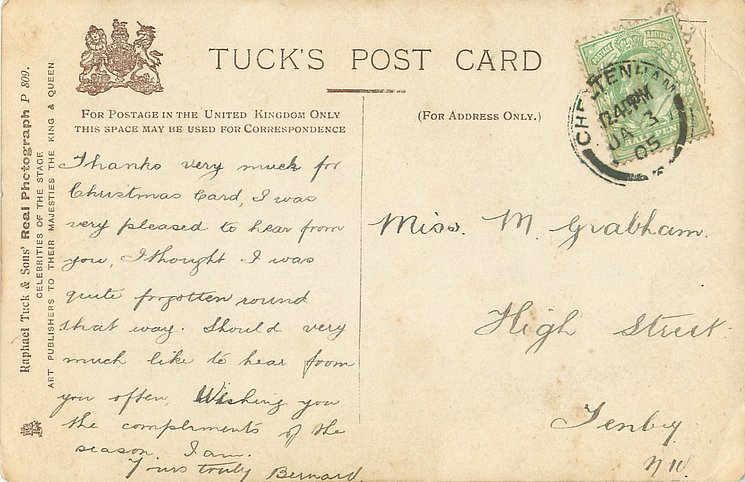 TUCK'S POST CARD
FOR POSTAGE IN THE UNITED KINGDOM ONLY
THIS SPACE MAY BE USED FOR CORRESPONDENCE
(FOR ADDRESS ONLY.)
Raphael Tuck & Sons' Real Photograph P 809.
CELEBRITIES OF THE STAGE
ART PUBLISHERS TO THEIR MAJESTIES THE KING & QUEEN
CHELTENHAM
12.40PM
JA 3
05
HALFPENNY
Thanks very much for
Christmas Card, I was
very pleased to hear from
you, I thought I was
quite forgotten round
that way. Should very
much like to hear from
you often, Wishing you
the compliments of the
season. I am.
Yours truly Bernard.
Miss. M. Grabham.
High Street.
Tenby